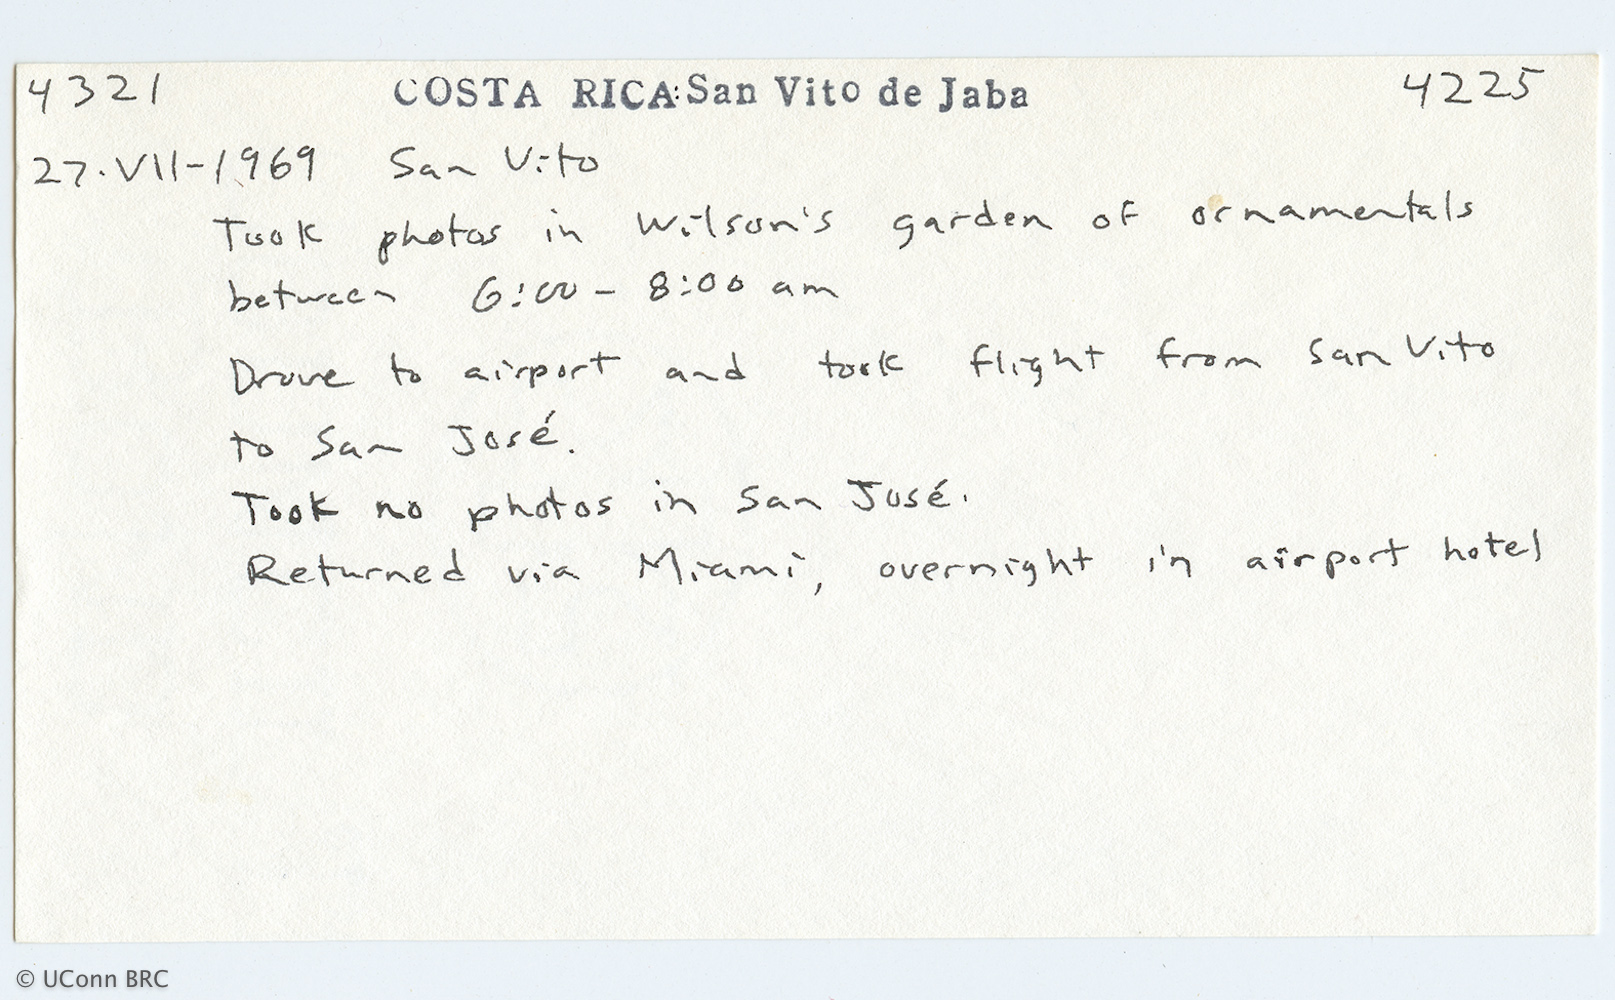 4321 COSTA RICA: San Vito de Jaba 4225
27.VII-1969 San Vito
Took photos in Wilson's garden of ornamentals
between 6:00 - 8:00 am
Drove to airport and took flight from San Vito
to San José.
Took no photos in San José.
Returned via Miami, overnight in airport hotel
© UConn BRC